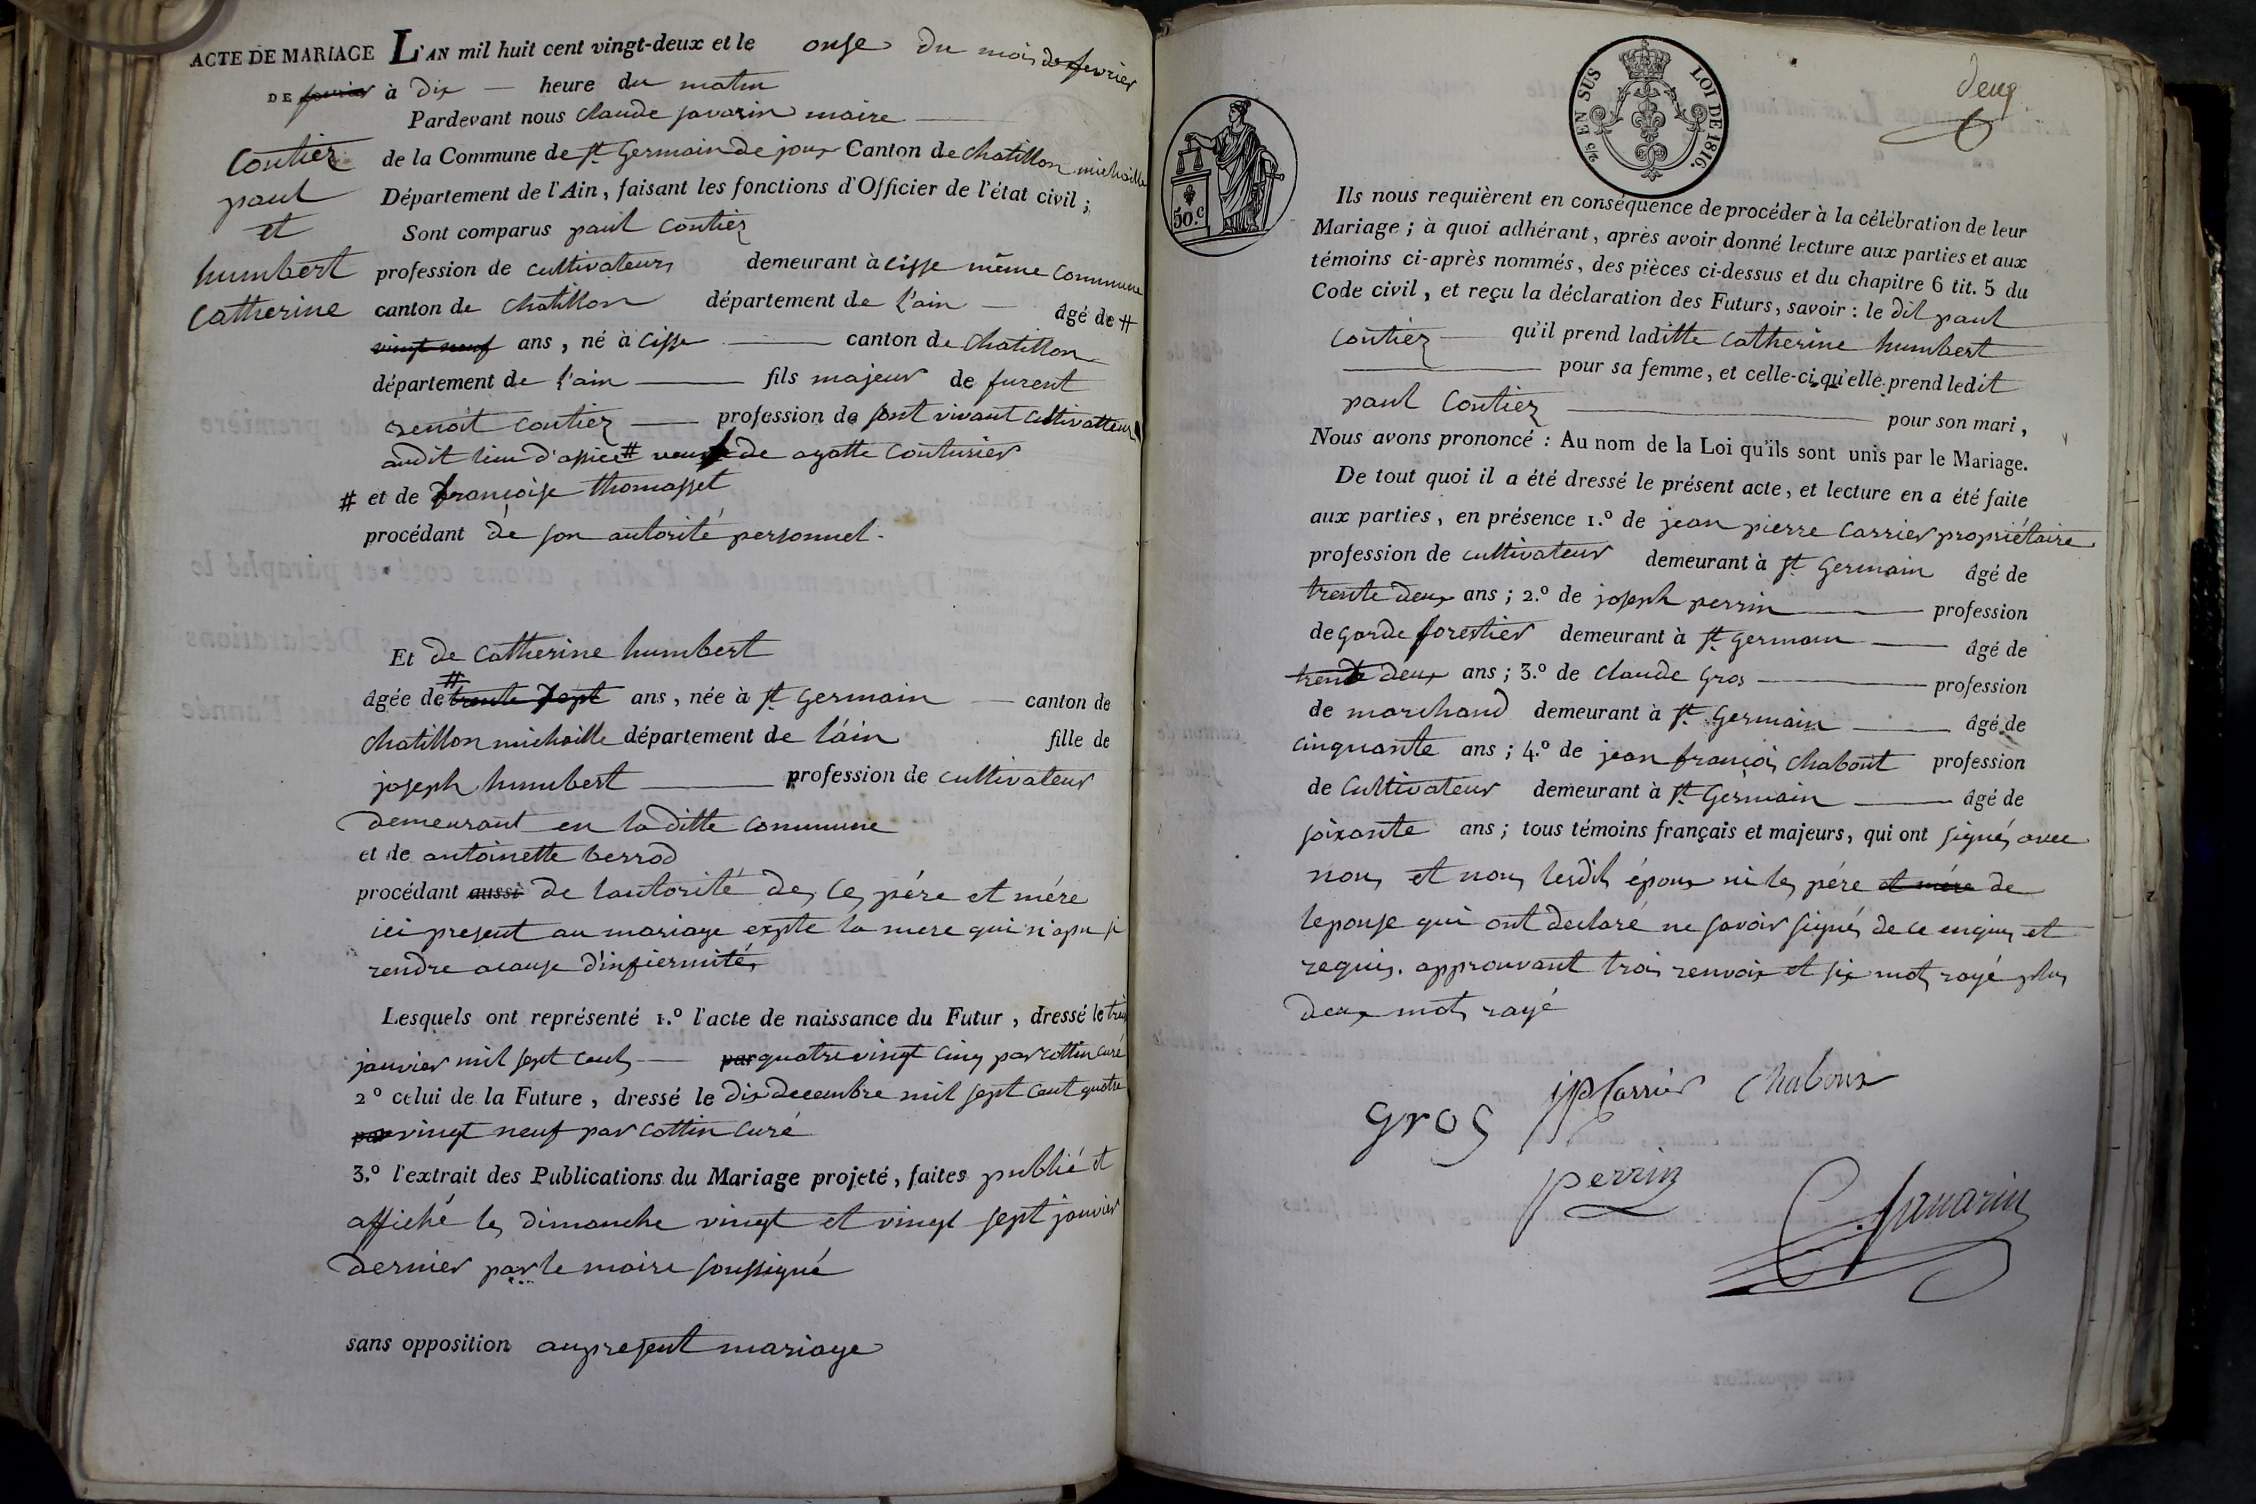 ACTE DE MARIAGE L'AN mil huit cent vingt-deux et le onse du mois de fevrier
DE à dix — heure du matin
Pardevant nous Claude savarin maire
de la Commune de St Germain de joux Canton de chatillon michaille
Département de l'Ain, faisant les fonctions d'Officier de l'état civil ;
Sont comparus paul Coutier
profession de cultivateurs demeurant à cisse même Commune
canton de chatillon département de l'ain — âgé de #
vingt neuf ans, né à cisse canton de chatillon
département de l'ain fils majeur de furent
benoit Coutier profession de sont vivant cultivatteur
audit lieu # de agatte Couturier
# et de françoise thomasset
procédant de son autorité personnel.
Coutier
paul
et
humbert
Catherine
Et de Catherine humbert
âgée de # trente sept ans, née à St Germain — canton de
chatillon michaille département de l'ain fille de
joseph humbert profession de cultivateur
demeurant en laditte commune
et de antoinette berrod
procédant aussi de lautorité de ces pére et mére
ici present au mariage expte la mere qui n'apu si
rendre acause d'infiermités
Lesquels ont représenté 1.º l'acte de naissance du Futur, dressé le
janvier mil sept cents — par quatre vingt cinq par cottin curé
2º celui de la Future, dressé le dix decembre mil sept cent quatre
par vingt neuf par cottin curé
3.º l'extrait des Publications du Mariage projeté, faites publié et
affiché les dimanche vingt et vingt sept janvier
dernier par le maire soussigné
sans opposition au present mariage
2/5 EN SUS LOI DE 1816.
50.c
deux
Ils nous requièrent en conséquence de procéder à la célébration de leur
Mariage ; à quoi adhérant, après avoir donné lecture aux parties et aux
témoins ci-après nommés, des pièces ci-dessus et du chapitre 6 tit. 5 du
Code civil, et reçu la déclaration des Futurs, savoir : le dit paul
coutier — qu'il prend laditte catherine humbert
pour sa femme, et celle-ci qu'elle prend ledit
paul Coutier pour son mari,
Nous avons prononcé : Au nom de la Loi qu'ils sont unis par le Mariage.
De tout quoi il a été dressé le présent acte, et lecture en a été faite
aux parties, en présence 1.º de jean pierre Carrier propriétaire
profession de cultivateur demeurant à St Germain âgé de
trente deux ans ; 2.º de joseph perrin profession
de garde forestier demeurant à St Germain âgé de
trente deux ans ; 3.º de Claude Gros profession
de marchand demeurant à St Germain âgé de
cinquante ans ; 4.º de jean françois Chabout profession
de Cultivateur demeurant à St Germain âgé de
soixante ans ; tous témoins français et majeurs, qui ont signés avec
nous et non lesdits époux ni les pére et mére de
lepouse qui ont declaré ne savoir signés de ce enquis et
requis. approuvant trois renvois et six mots rayé plus
deux mots rayé
gros jpCarrier Chaboux
perrin C. savarin